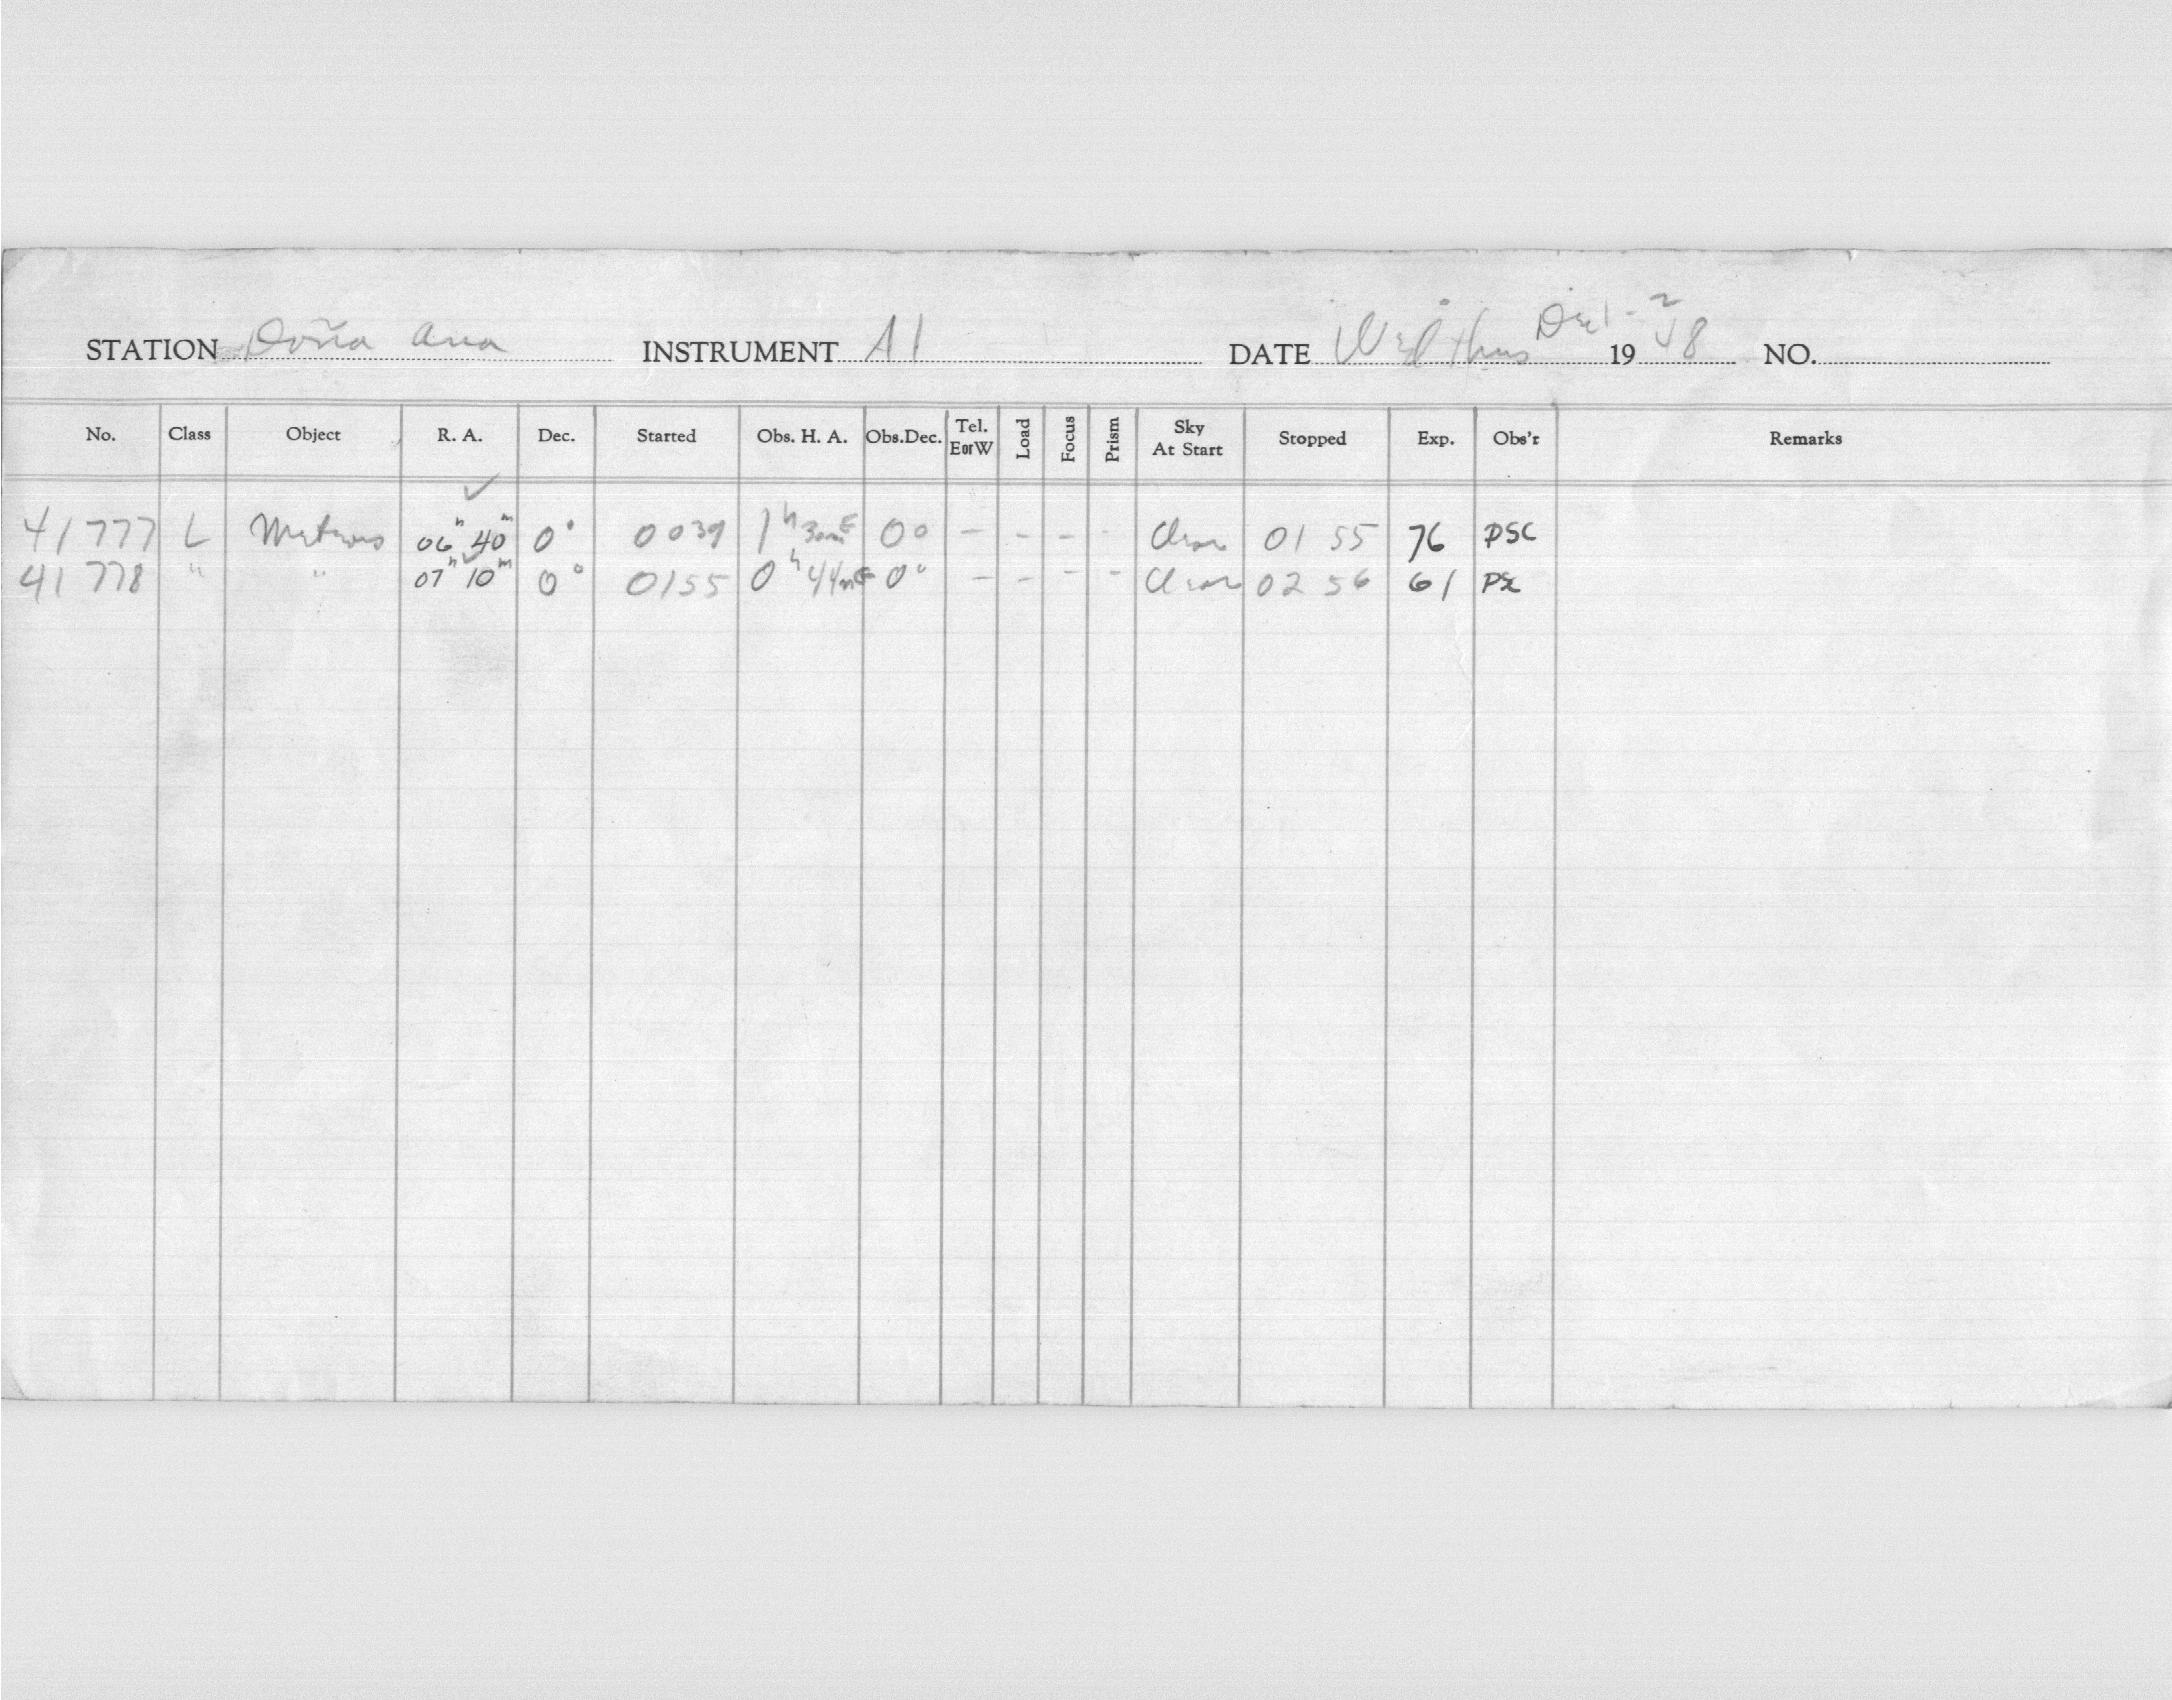 STATION Doña Ana INSTRUMENT A1 DATE Wed thurs Dec 1-2 1948 NO.
No. Class Object R. A. Dec. Started Obs. H. A. Obs.Dec. Tel. EorW Load Focus Prism Sky At Start Stopped Exp. Obs'r Remarks
41777 L Meteors 06h 40m 0° 0039 1h 30mE 0° - - - - Clear 01 55 76 PSC
41778 " " 07h 10m 0° 0155 0h 44mE 0° - - - - Clear 02 56 61 PSC